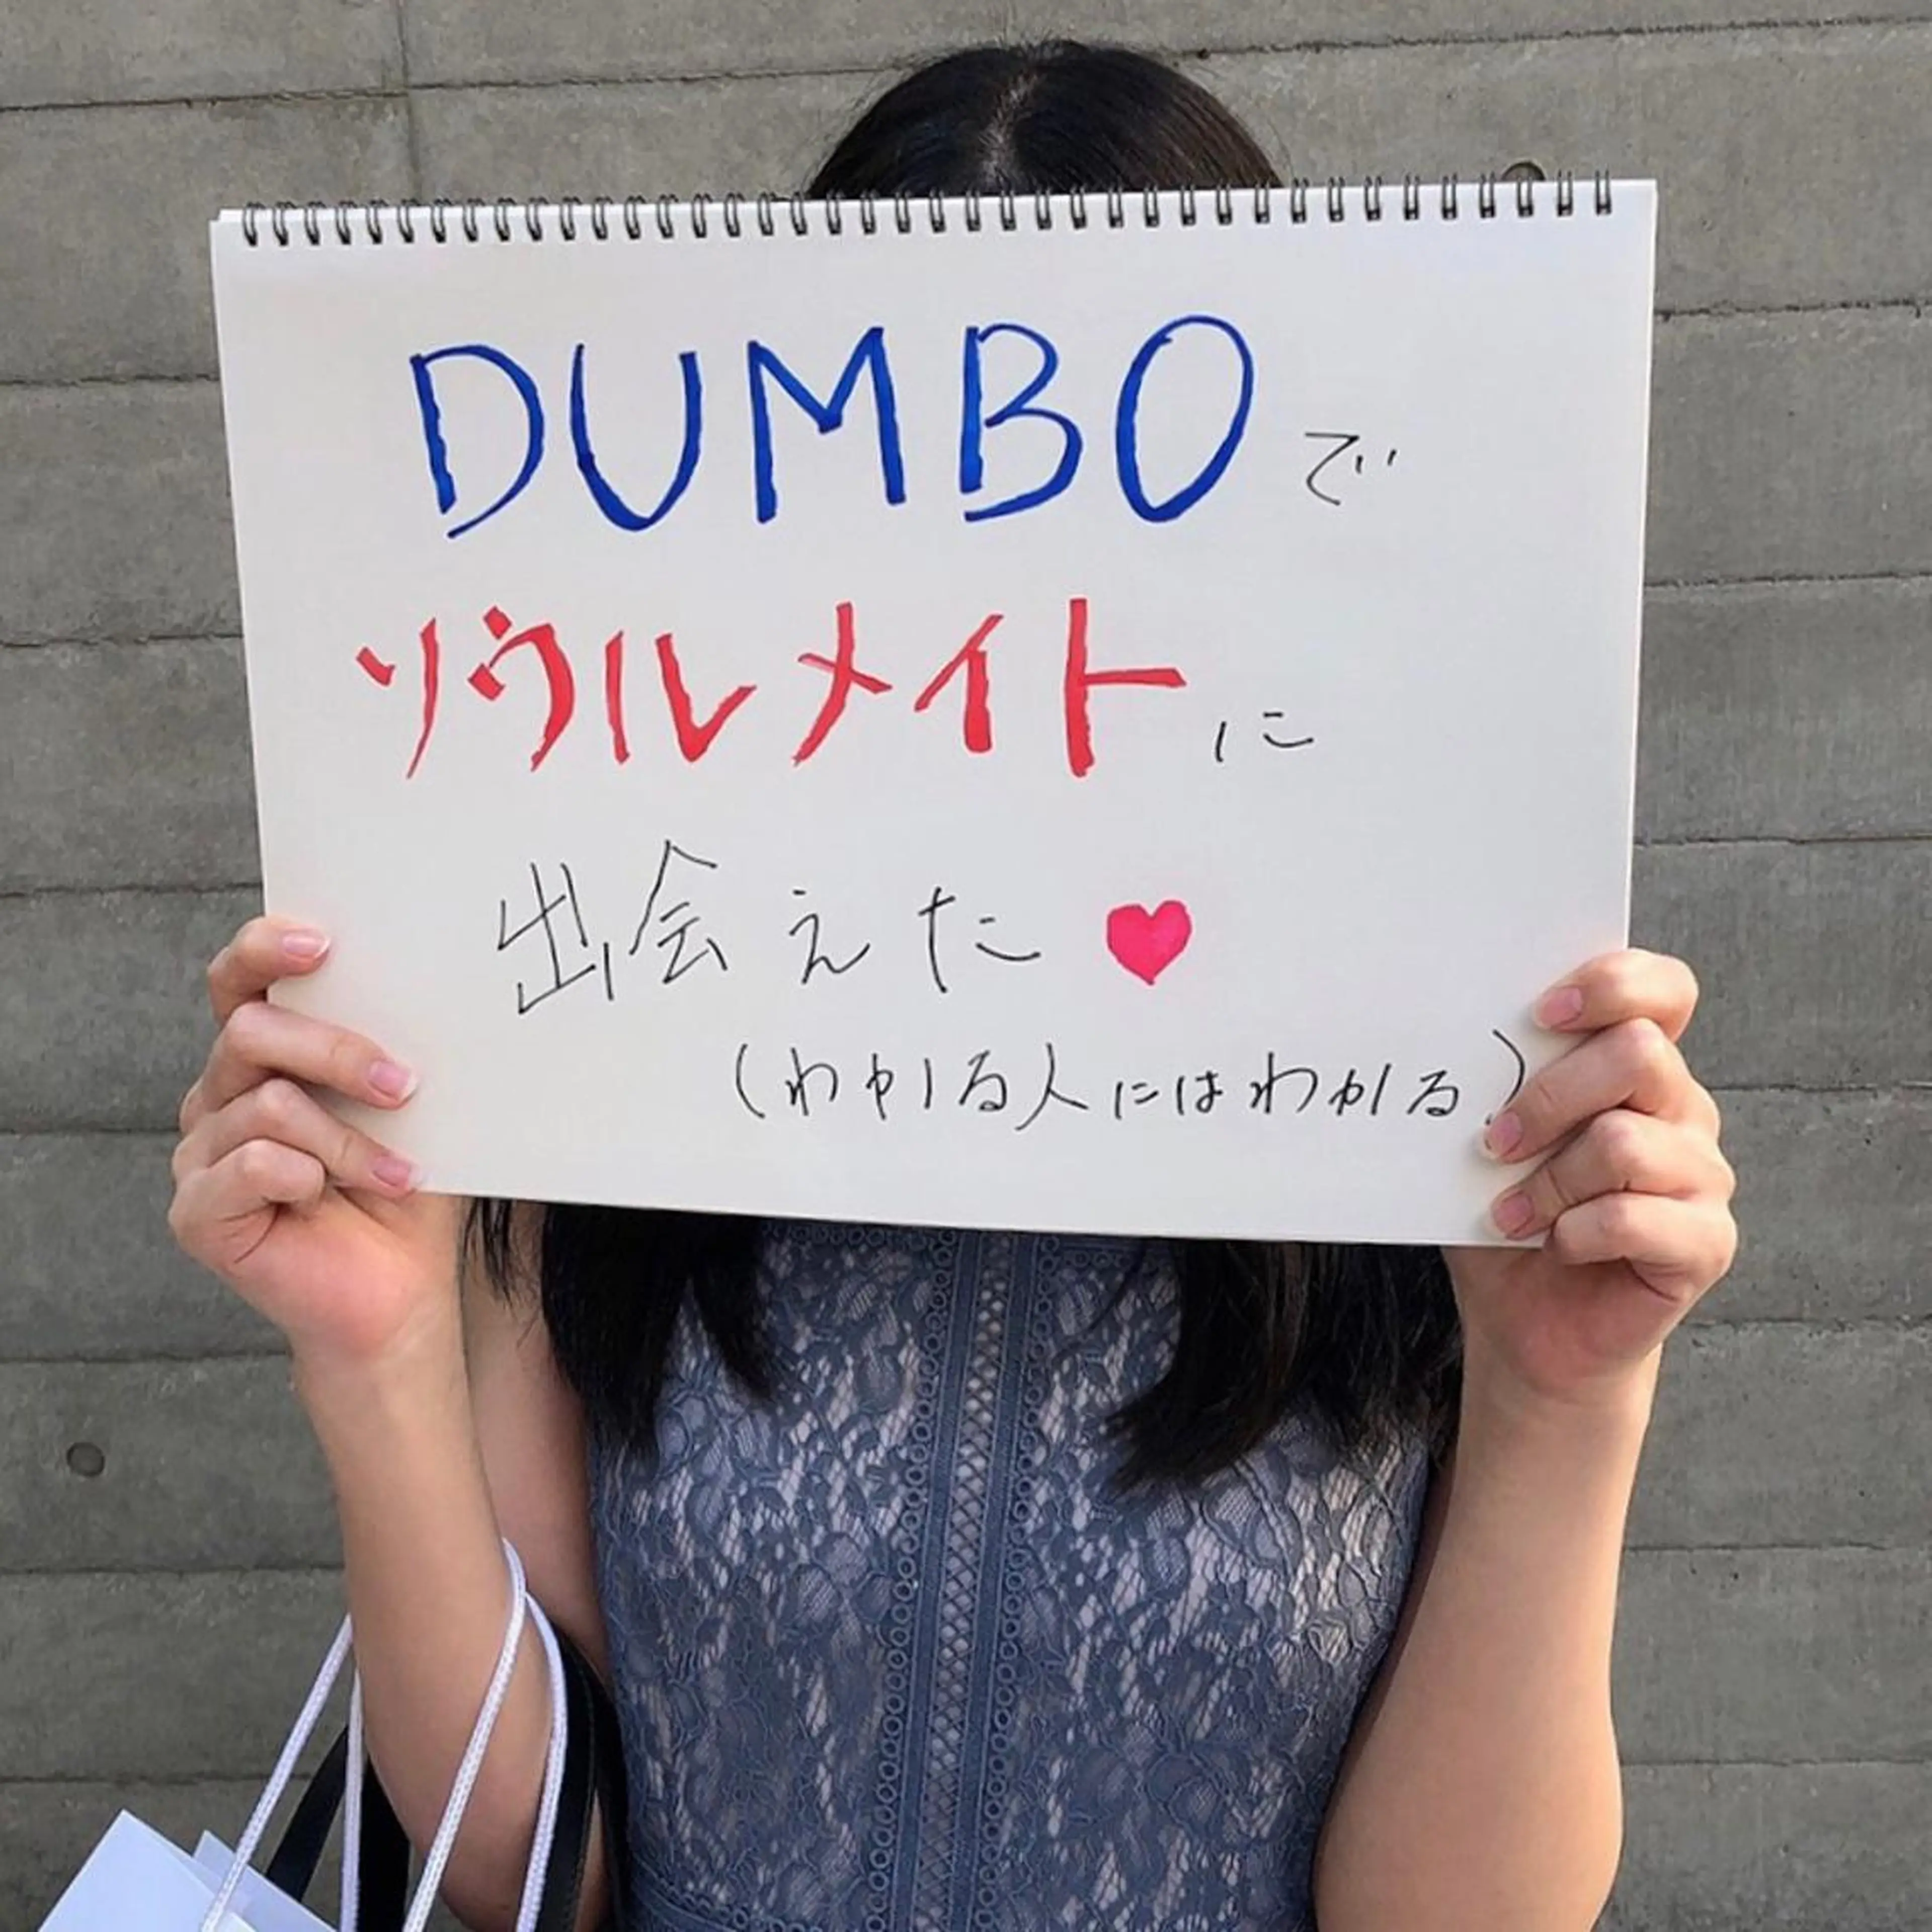 DUMBOで
ソウルメイトに
出会えた♥
(わかる人にはわかる)